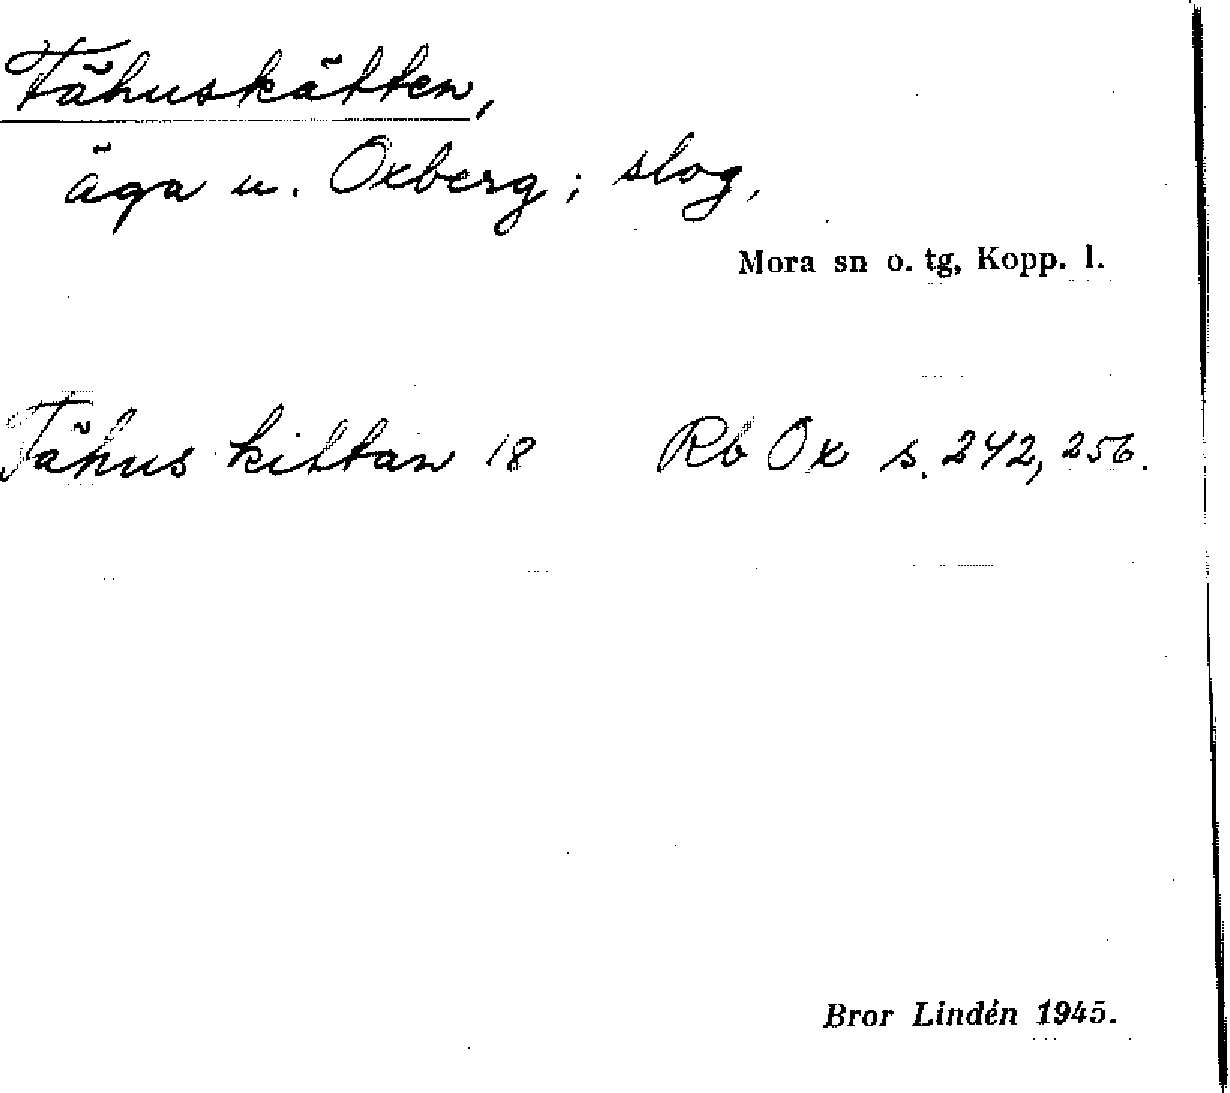 Fähuskätten,
äga u. Oxberg; slog.
Mora sn o. tg, Kopp. l.
Fähus kittan 18 Rb Ox s. 242, 256.
Bror Lindén 1945.